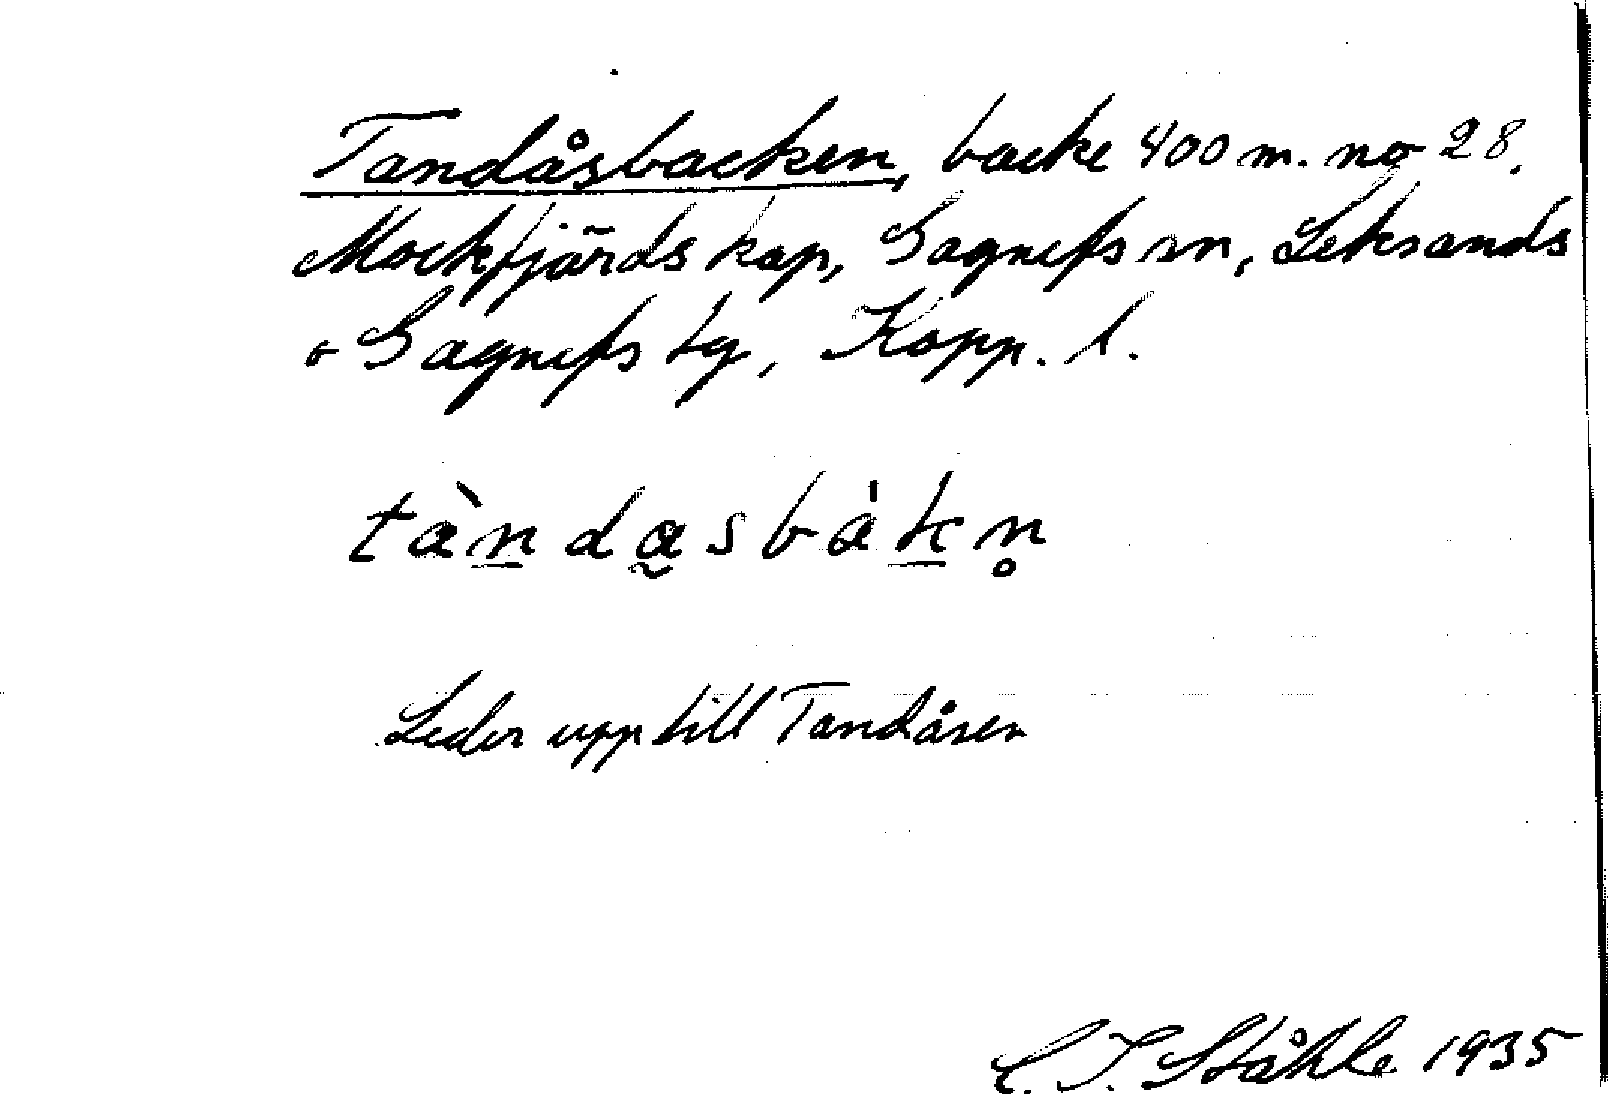 Tandåsbacken, backe 400 m. no 28.
Mockfjärds kap, Gagnefs sn, Leksands
o Gagnefs tg, Kopp. l.
tàndasbàkn̥
Leder upp till Tandåsen
C. I. Ståhle 1935